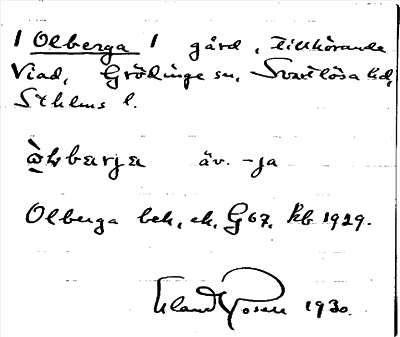 1 Olberga 1 gård, tillhörande
Viad, Grödinge sn, Svartlösa hd,
Sthlms l.
äv. -ja
Olberga bek. ek. G 67, Kb 1929.
1930.